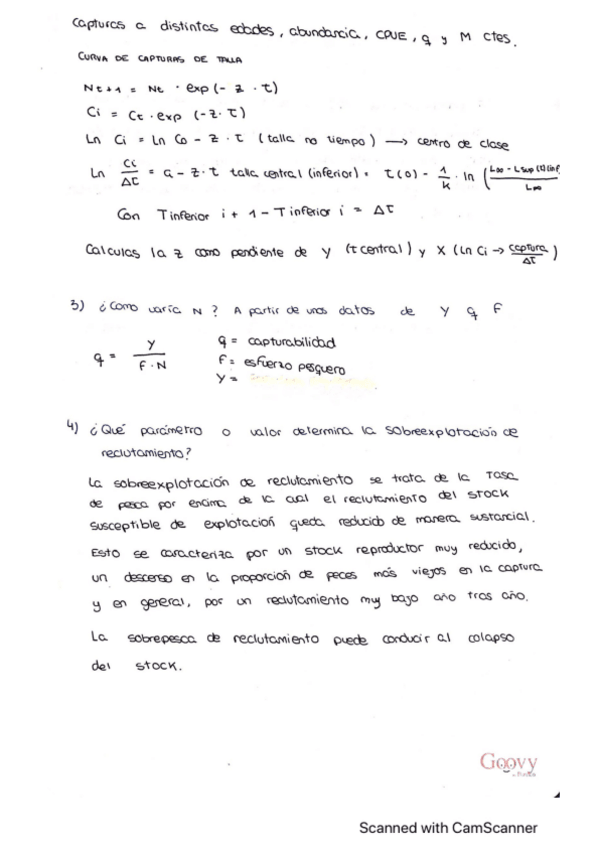 Capturas a distintas edades, abundancia, CPUE, q y M ctes.
CURVA DE CAPTURAS DE TALLA
Nt+1 = Nt · exp(- z · t)
Ci = Ct · exp (-z · t)
Ln Ci = Ln C0 - z · t (talla no tiempo) → centro de clase
Ln Ci/Δt = a - z · t talla central (inferior) = t(0) - 1/k · ln (L∞ - Lsup(i)(inf/L∞
Con Tinferior i + 1 - Tinferior i = Δt
Calculas la z como pendiente de Y (t central) y X (Ln Ci → captura/Δt)
3) ¿Como varía N? A partir de unos datos de Y q F
q = Y/F·N
q = capturabilidad
F = esfuerzo pesquero
Y =
4) ¿Qué parámetro o valor determina la sobreexplotación de
reclutamiento?
La sobreexplotación de reclutamiento se trata de la Tasa
de pesca por encima de la cual el reclutamiento del stock
susceptible de explotación queda reducido de manera sustancial.
Esto se caracteriza por un stock reproductor muy reducido,
un descenso en la proporción de peces más viejos en la captura
y en general, por un reclutamiento muy bajo año tras año.
La sobrepesca de reclutamiento puede conducir al colapso
del stock.
Goovy
Scanned with CamScanner